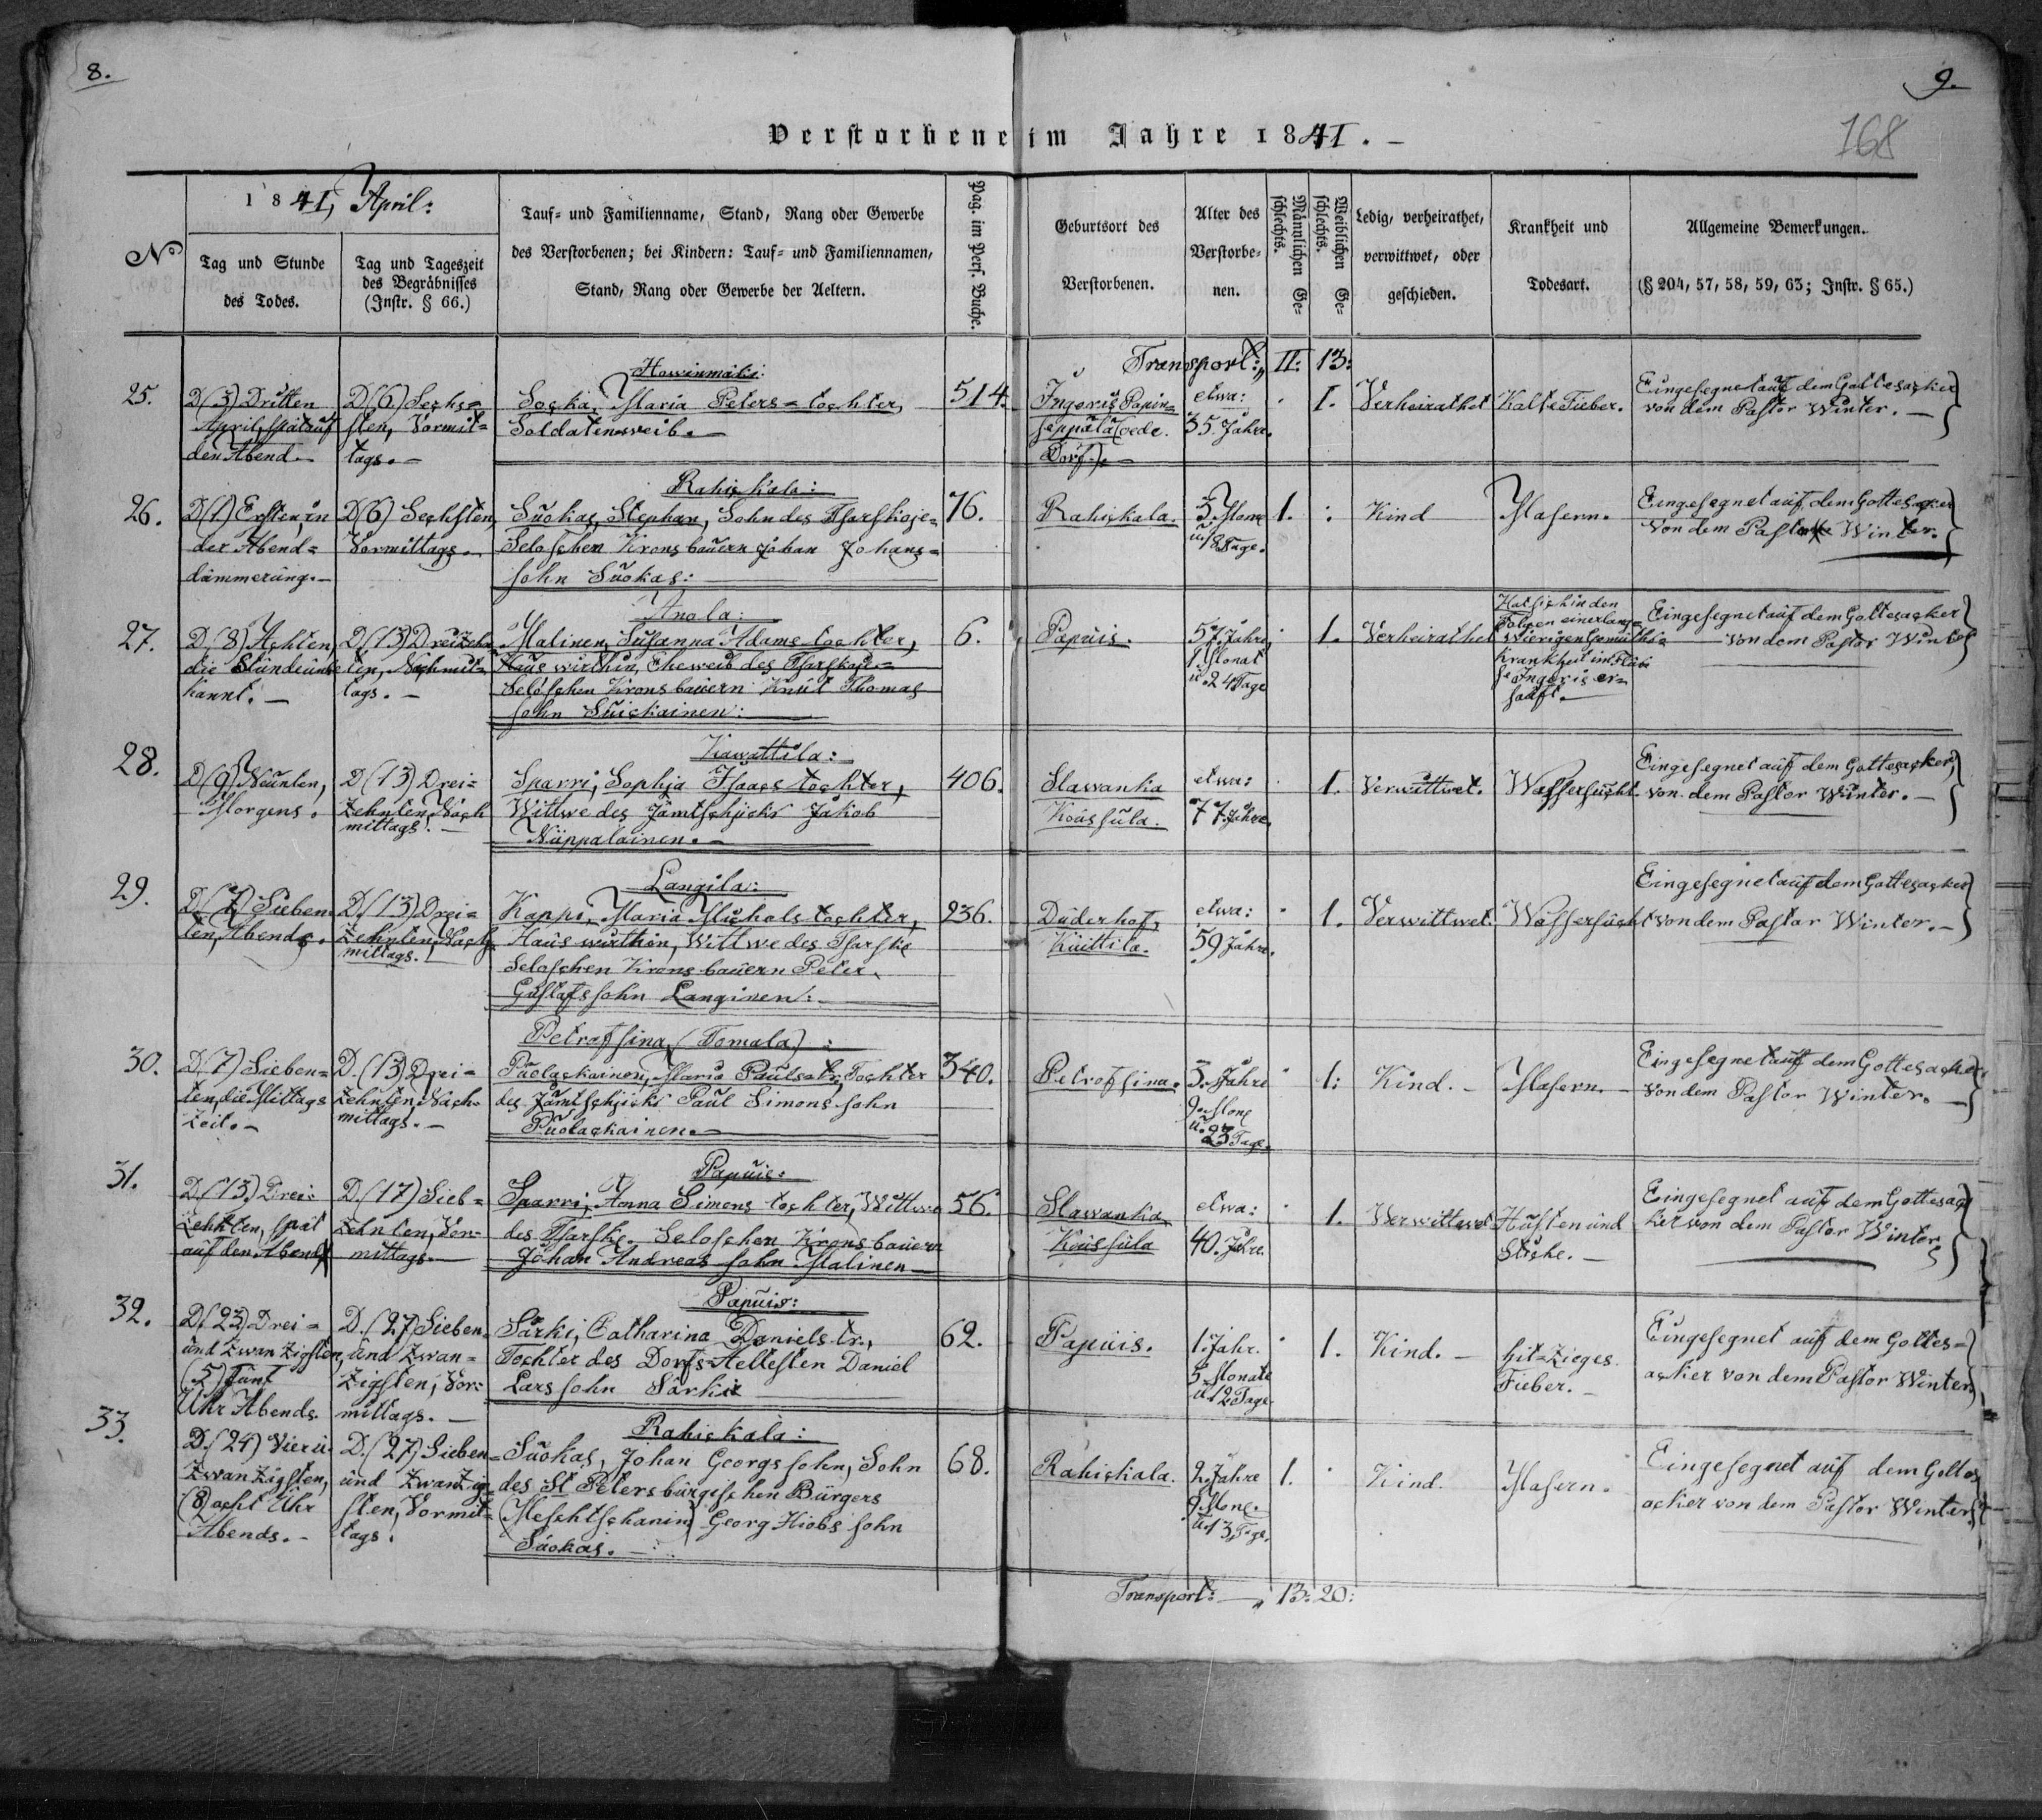 8.
9.
168
Verstorbene im Jahre 1841. -
1841, April:
No
Tag und Stunde
des Todes.
Tag und Tageszeit
des Begräbnisses
(Instr. § 66.)
Tauf- und Familienname, Stand, Rang oder Gewerbe
des Verstorbenen; bei Kindern: Tauf- und Familiennamen,
Stand, Rang oder Gewerbe der Aeltern.
Pag. im Pers. Buche.
Geburtsort des
Verstorbenen.
Alter des
Verstorbe-
nen.
Männlichen Ge-
schlechts.
Weiblichen Ge-
schlechts.
Ledig, verheirathet,
verwittwet, oder
geschieden.
Krankheit und
Todesart.
Allgemeine Bemerkungen.
(§ 204, 57, 58, 59, 63; Instr. § 65.)
Transport: II: 13:
25.
D (3) Dritten
April, spät auf
den Abend. -
D (6) Sechs=
sten, Vormit=
tags. -
Howinmäki:
Socka, Maria Peters=tochter,
Soldatenweib. -
514.
Ingoris Papin=
seppälä (oede.
Dorf). -
etwa:
35. Jahre.
1.
Verheirathet
Kalte Fieber.
Eingesegnet auf dem Gottesacker
von dem Pastor Winter. -
26.
D (1) Ersten, in
der Abend=
dämmerung. -
D (6) Sechsten,
Vormittags. -
Rahickala:
Suokas, Stephan, Sohn des Tsarskoje=
Seloschen Kronsbauern Johan Johans=
sohn Suokas:
76.
Rahickala.
3. Mone
u. 8 Tage.
1.
Kind
Masern.
Eingesegnet auf dem Gottesacker
von dem Pastor Winter.
27.
D. (8) Achten,
die Stunde unbe
kannt. -
D. (13) Dreizehn
ten, Nachmit=
tags. -
Anola:
Malinen, Susanna Adams tochter,
Hauswirthin, Eheweib des Tsarskoje=
Seloschen Kronsbauern Knut Thomas
sohn Suickainen:
6.
Papuis.
57 Jahre
1. Monat
u. 24 Tage
1.
Verheirathet
Hat sich in den
Folgen einer lang=
wierigen Gemüths=
krankheit im Flüs
se Ingoris er=
säuft. -
Eingesegnet auf dem Gottesacker
von dem Pastor Winter
28.
D (9) Neunten,
Morgens.
D (13) Drei=
zehnten, Nach
mittags. -
Kawattila:
Sparri, Sophia Isaacs tochter,
Wittwe des Jämtschicks Jakob
Nüppalainen. -
406.
Slawanka
Koussula.
etwa:
77. Jahre.
1.
Verwittwet.
Wassersucht
Eingesegnet auf dem Gottesacker,
von dem Pastor Winter. -
29.
D. (7) Sieben
ten, Abends.
D. (13) Drei=
zehnten, Nach
mittags.
Langila:
Kappi, Maria Michals tochter,
Hauswirthin, Wittwe des Tsarske
Seloschen Kronsbauern Peter
Gustafssohn Langinen:
236.
Duderhof,
Kuittila.
etwa:
59 Jahre.
1.
Verwittwet.
Wassersucht
Eingesegnet auf dem Gottesacker
von dem Pastor Winter. -
30.
D (7) Sieben=
ten, die Mittags
zeit. -
D. (13) Drei=
zehnten, Nach=
mittags. -
Petrofsina, (Tomala):
Puolackainen, Maria Pauls=tr. Tochter
des Jämtschicks Paul Simons sohn
Puolackainen. -
340.
Petrofsina.
3. Jahre
9. Mone
u. 23 Tage.
1:
Kind. -
Masern. -
Eingesegnet auf dem Gottesacker,
von dem Pastor Winter. -
31.
D. (13.) Drei=
zehnten, spät
auf den Abend
D. (17) Sieb=
zehnten, Vor=
mittags. -
Papuis:
Sparri, Anna Simons tochter, Wittwe
des Tsarske. Seloschen Kronsbauern
Johan Andreas sohn Malinen
56.
Slawanka
Koussula
etwa:
40. Jahre.
1.
Verwittwet
Husten und
Stiche. -
Eingesegnet auf dem Gottesac
ker von dem Pastor Winter
32.
D. (23) Drei=
und Zwanzigsten,
(5) Fünf
Uhr Abends.
D. (27) Sieben=
und Zwan=
zigsten, Vor=
mittags. -
Papuis:
Särki, Catharina Daniels tr.,
Tochter des Dorfs=Aeltesten Daniel
Lars sohn Särki
62.
Papuis.
1. Jahr.
3. Monate
u. 12 Tage.
1.
Kind. -
hit=ziges
Fieber. -
Eingesegnet auf dem Gottes=
acker von dem Pastor Winter
33.
D. (24) Vier u.
Zwanzigsten,
(8) acht Uhr
Abends. -
D. (27) Sieben=
und Zwanzig=
sten, Vormit=
tags.
Rahickala:
Suokas, Johan Georgs sohn, Sohn
des St Petersburgischen Bürgers
(Meschtschanin) Georg Hiobs sohn
Suokas. -
68.
Rahickala.
2. Jahre
9 Mone.
u. 13 Tage.
1.
Kind.
Masern.
Eingesegnet auf dem Gottes
acker von dem Pastor Winter.
Transport: - 13: 20: